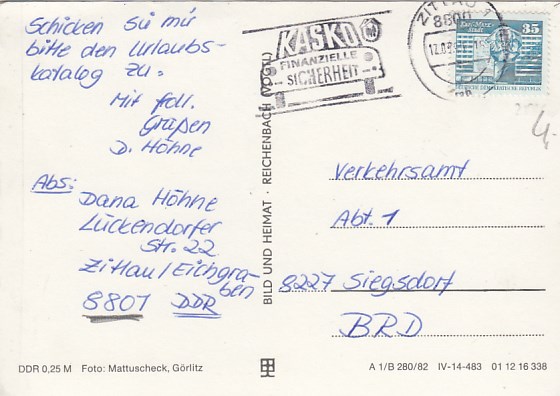 Schicken Sie mir
bitte den Urlaubs-
katalog zu.
Mit frdl.
Grüßen
D. Höhne
Abs:
Dana Höhne
Lückendorfer
Str. 22
Zittau/Eichgra-
ben
8801 DDR
BILD UND HEIMAT · REICHENBACH (VOGTL)
KASKO
FINANZIELLE
SICHERHEIT
ZITTAU
8800
35
DEUTSCHE DEMOKRATISCHE REPUBLIK
4,-
Verkehrsamt
Abt. 1
8227 Siegsdorf
BRD
DDR 0,25 M Foto: Mattuscheck, Görlitz
A 1/B 280/82 IV-14-483 01 12 16 338